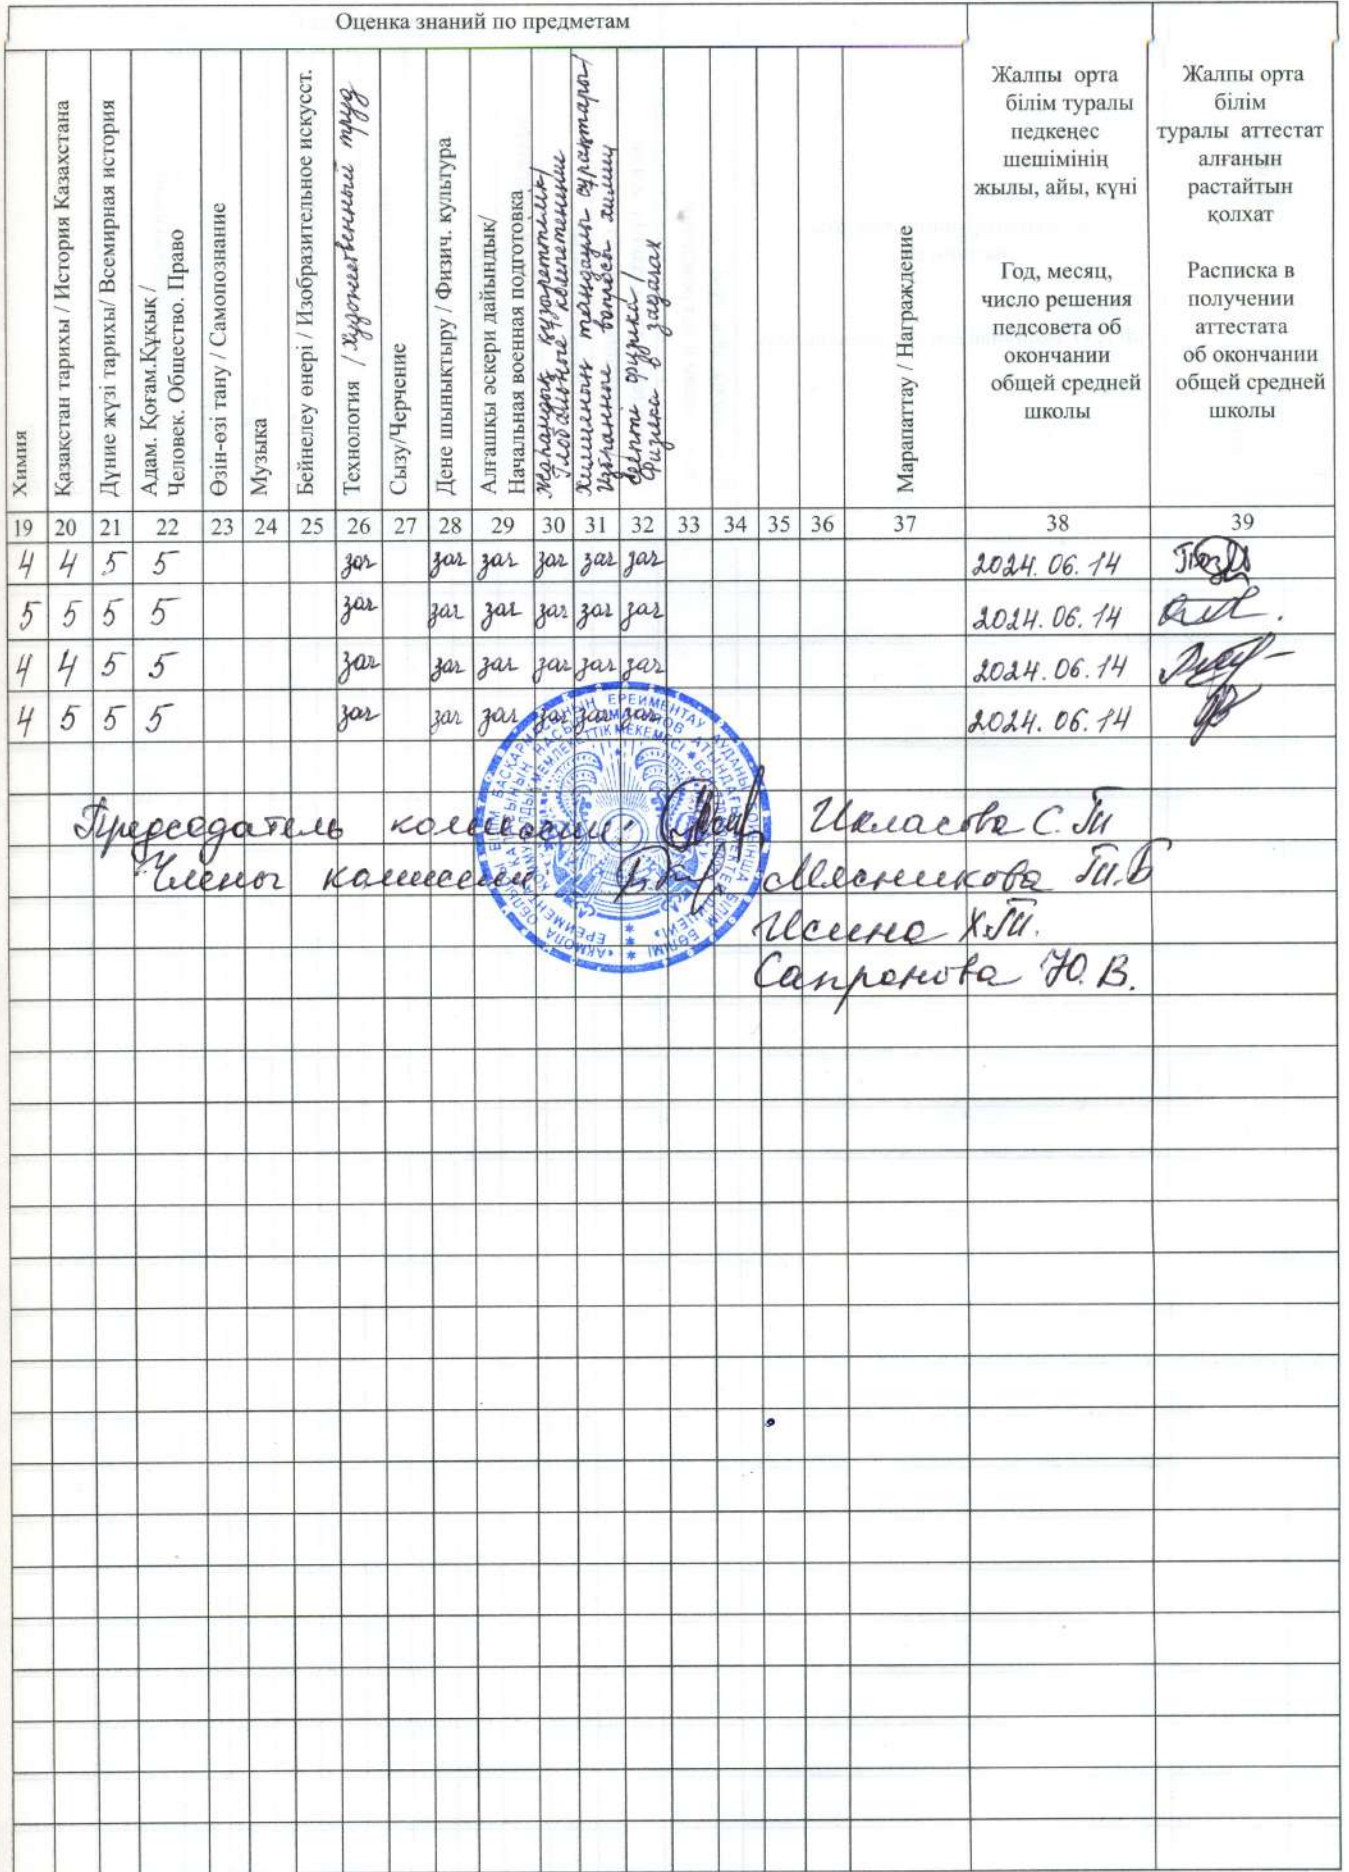 Оценка знаний по предметам
Химия
Қазақстан тарихы / История Казахстана
Дүние жүзі тарихы/ Всемирная история
Адам. Қоғам.Құқық /
Человек. Общество. Право
Өзін-өзі тану / Самопознание
Музыка
Бейнелеу өнері / Изобразительное искусст.
Технология / Художественный труд
Сызу/Черчение
Дене шынықтыру / Физич. культура
Алғашқы әскери дайындық/
Начальная военная подготовка
Жаһандық құзыреттілік/
Глобальные компетенции
Химияның таңдаулы сұрақтары/
Избранные вопросы химии
Есепті физика/
Физика в задачах
Марапаттау / Награждение
Жалпы орта
білім туралы
педкеңес
шешімінің
жылы, айы, күні
Год, месяц,
число решения
педсовета об
окончании
общей средней
школы
Жалпы орта
білім
туралы аттестат
алғанын
растайтын
қолхат
Расписка в
получении
аттестата
об окончании
общей средней
школы
19 20 21 22 23 24 25 26 27 28 29 30 31 32 33 34 35 36 37 38 39
4 4 5 5 зач зач зач зач зач зач 2024. 06. 14
5 5 5 5 зач зач зач зач зач зач 2024. 06. 14
4 4 5 5 зач зач зач зач зач зач 2024. 06. 14
4 5 5 5 зач зач зач зач зач зач 2024. 06. 14
Председатель комиссии: Икласова С.Т
Члены комиссии Мясникова Т.Б
Исина Х.Т.
Сапронова Ю.В.